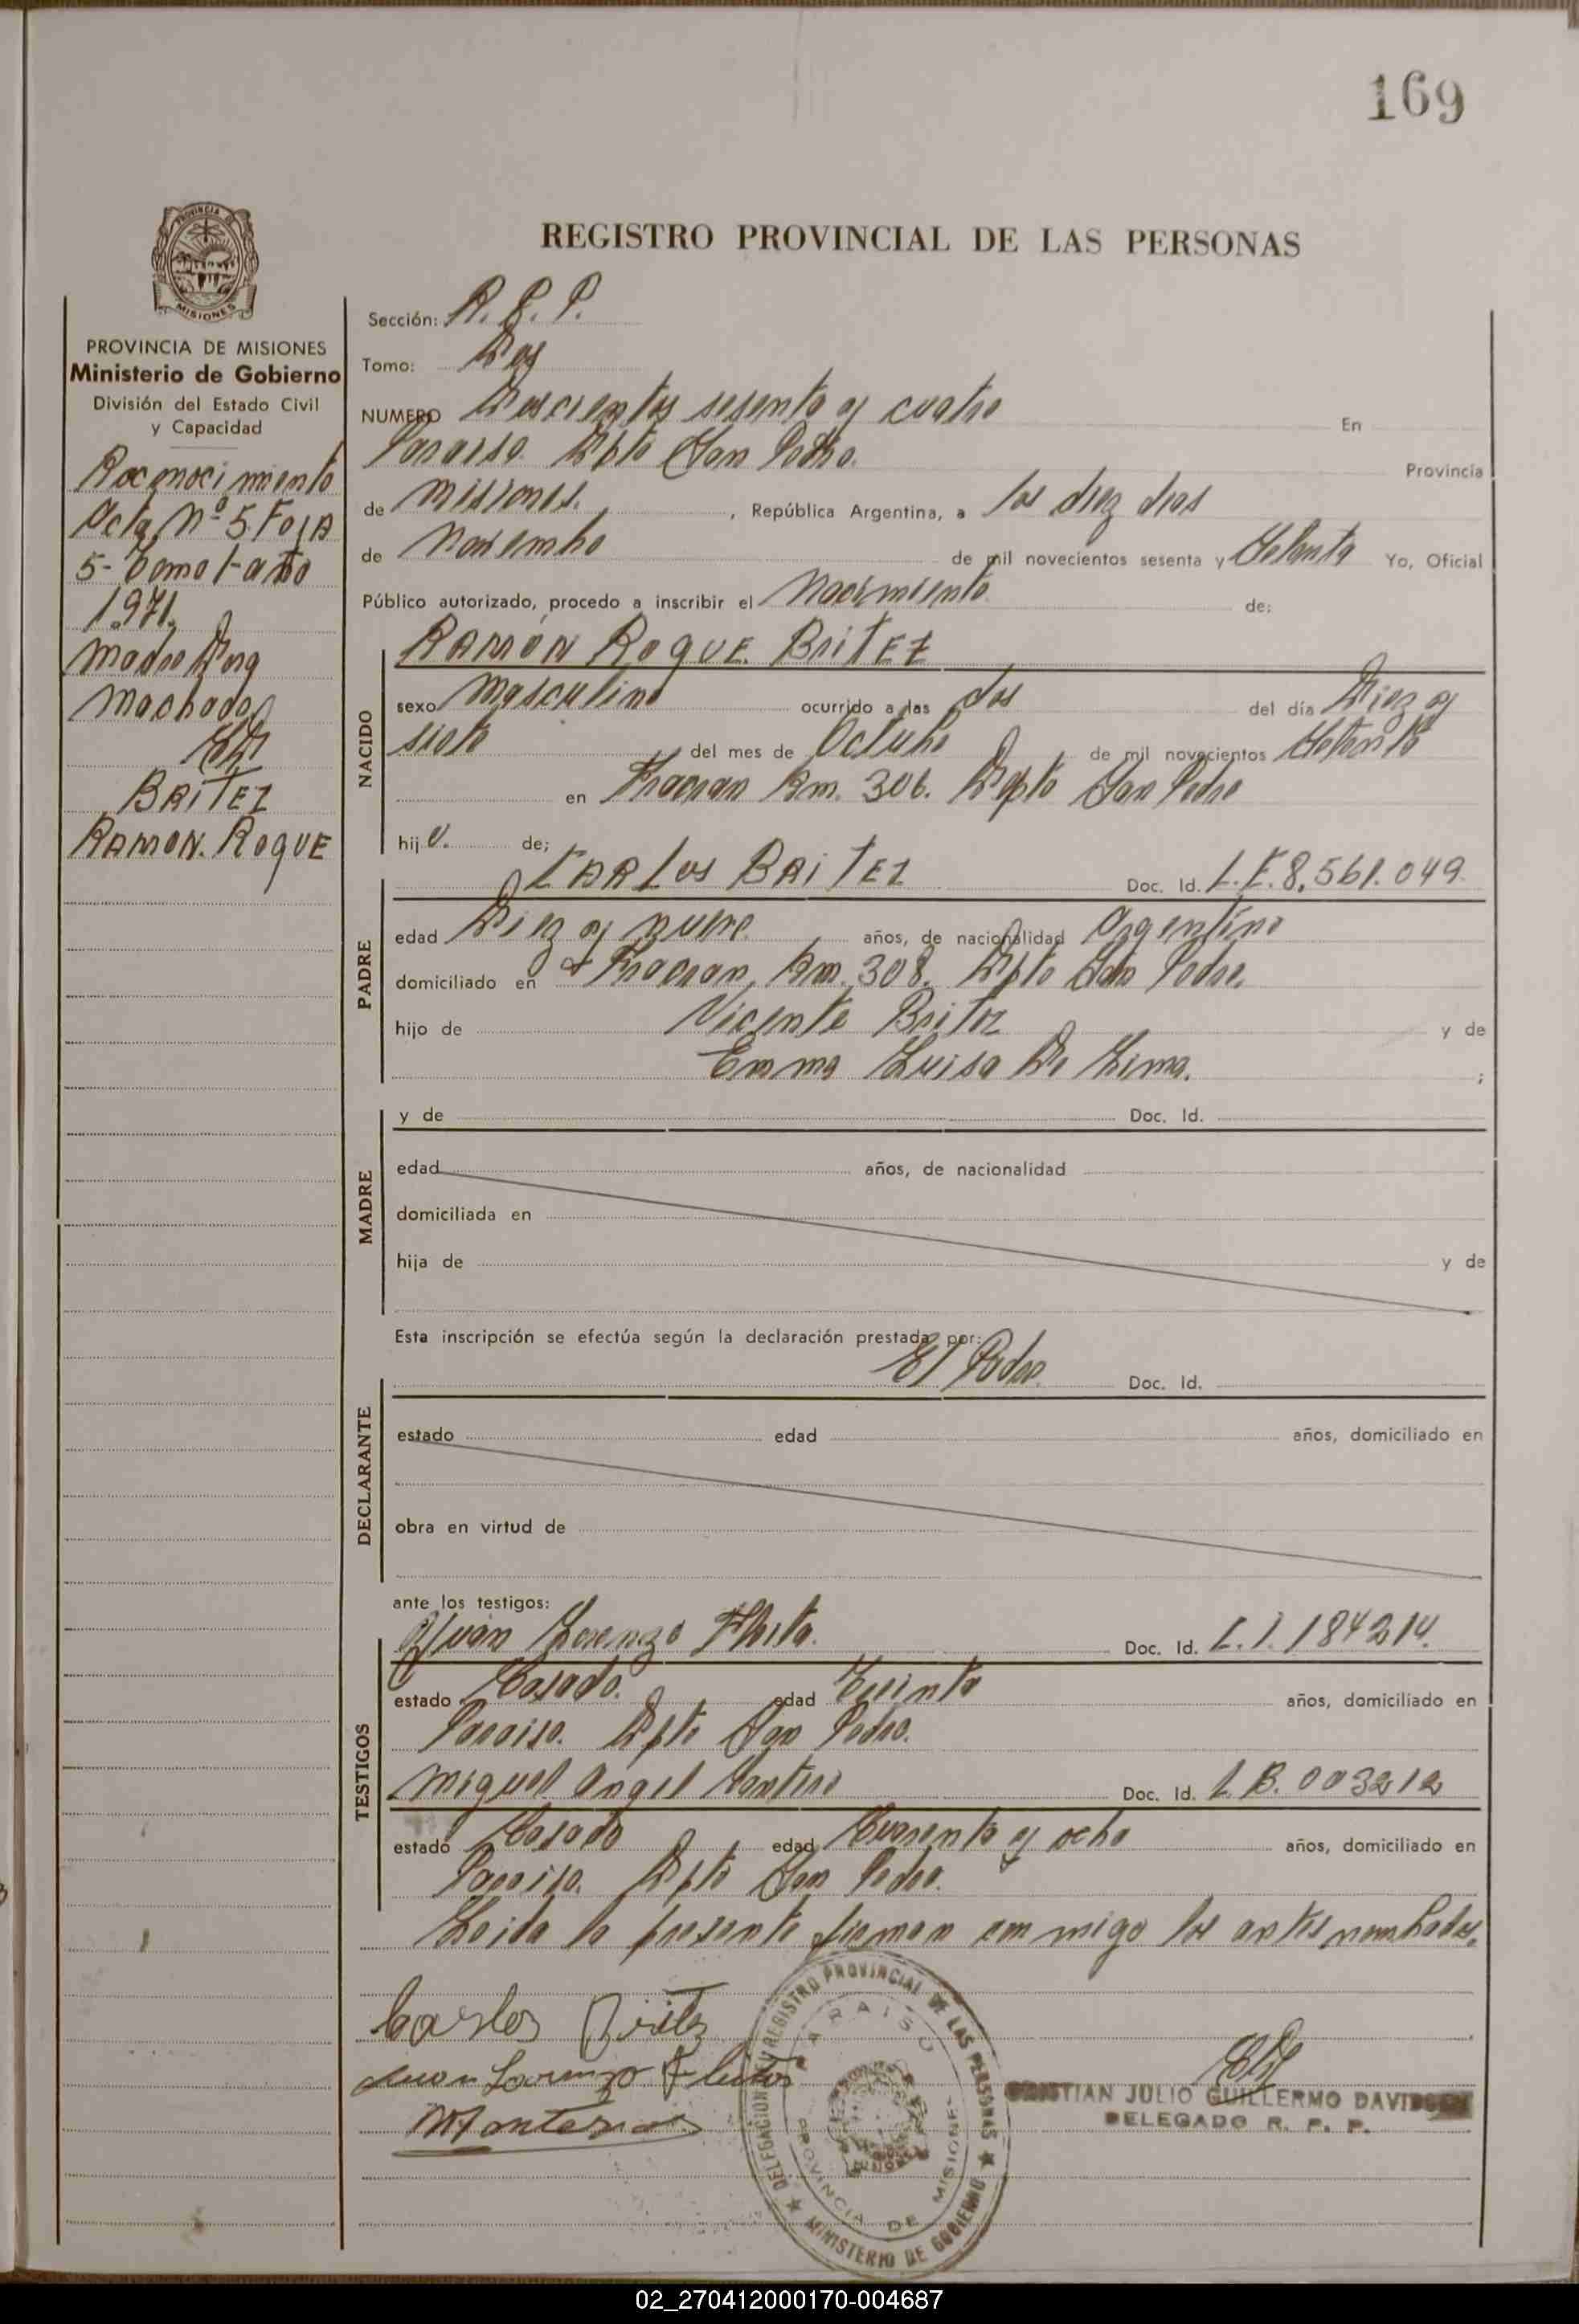 169
PROVINCIA DE
MISIONES
PROVINCIA DE MISIONES
Ministerio de Gobierno
División del Estado Civil
y Capacidad
Reconocimiento
Acta Nº 5 Foja
5- Tomo 1- año
1971,
Madre
Machado
BRITEZ
RAMON. ROQUE
REGISTRO PROVINCIAL DE LAS PERSONAS
Sección: R. P. P.
Tomo: Dos
NUMERO Doscientos sesenta y cuatro En
Paraiso. Dpto San Pedro. Provincia
de Misiones. , República Argentina, a los diez dias
de Noviembre de mil novecientos sesenta y Setenta Yo, Oficial
Público autorizado, procedo a inscribir el Nacimiento de:
NACIDO
RAMÓN ROQUE. BRITEZ
sexo Masculino ocurrido a las dos del día Diez y
siete del mes de Octubre de mil novecientos Setenta
en Fracran Km. 306. Dpto San Pedro
hij o. de;
PADRE
CARLOS BRITEZ Doc. Id. L.E. 8.561.049.
edad Diez y nueve años, de nacionalidad Argentino
domiciliado en Fracran, Km. 308. Dpto San Pedro.
hijo de Vicente Britez y de
Emma Luisa De Lima. ;
MADRE
y de Doc. Id.
edad años, de nacionalidad
domiciliada en
hija de y de
Esta inscripción se efectúa según la declaración prestada por:
DECLARANTE
El Padre. Doc. Id.
estado edad años, domiciliado en
obra en virtud de
ante los testigos:
TESTIGOS
Juan Lorenzo Doc. Id. C.I. 184214.
estado Casado. edad Treinta años, domiciliado en
Paraiso. Dpto San Pedro.
Miguel Angel Doc. Id. 003212
estado Casado edad Cuarenta y ocho años, domiciliado en
Paraiso. Dpto San Pedro.
Leida la presente firman conmigo los antes nombrados.
Carlos Britez
Juan Lorenzo
DELEGACION REGISTRO PROVINCIAL DE LAS PERSONAS
PARAISO
PROVINCIA DE MISIONES
MINISTERIO DE GOBIERNO
CRISTIAN JULIO GUILLERMO DAVIDSEN
DELEGADO R. P. P.
02_270412000170-004687